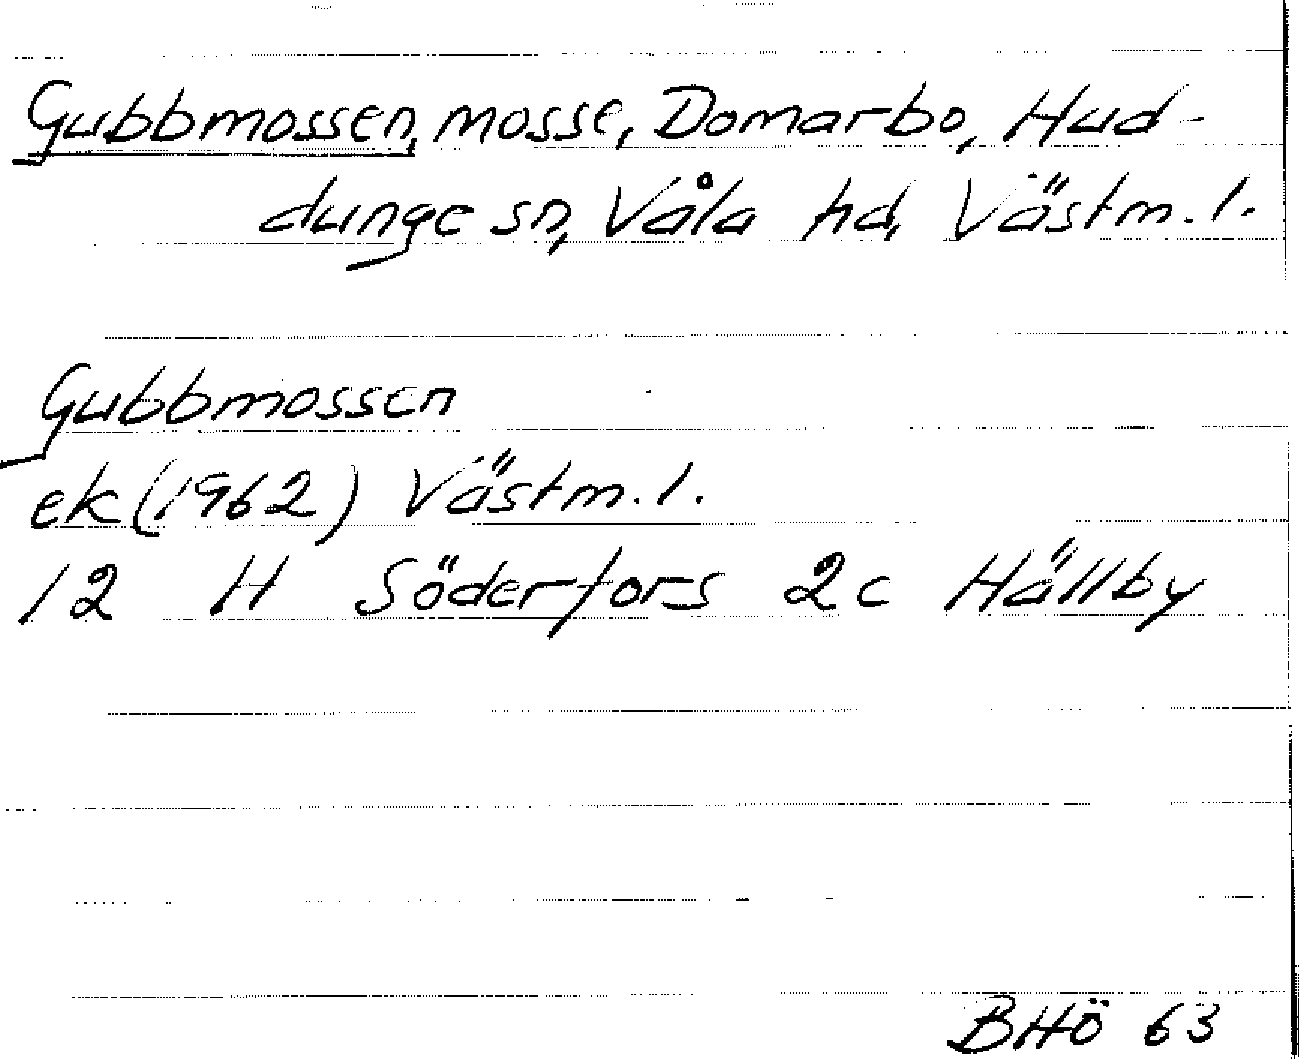 Gubbmossen, mosse, Domarbo, Hud-
dunge sn, Våla hd, Västm. l.
Gubbmossen
ek (1962) Västm. l.
12 H Söderfors 2c Hällby
BHÖ 63